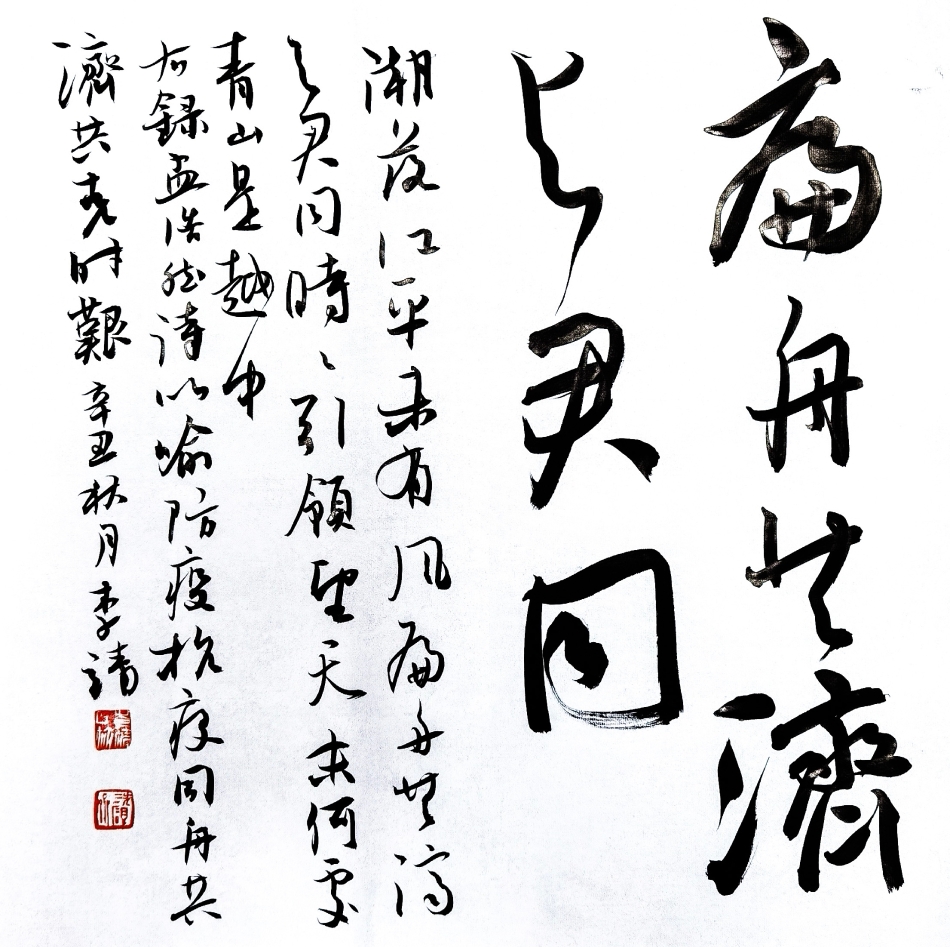 扁舟共濟
与君同
潮落江平未有風扁舟共濟
与君同時〻引領望天末何處
青山是越中
右錄孟浩然詩以喻防疫抗疫同舟共
濟共克时艱辛丑秋月李